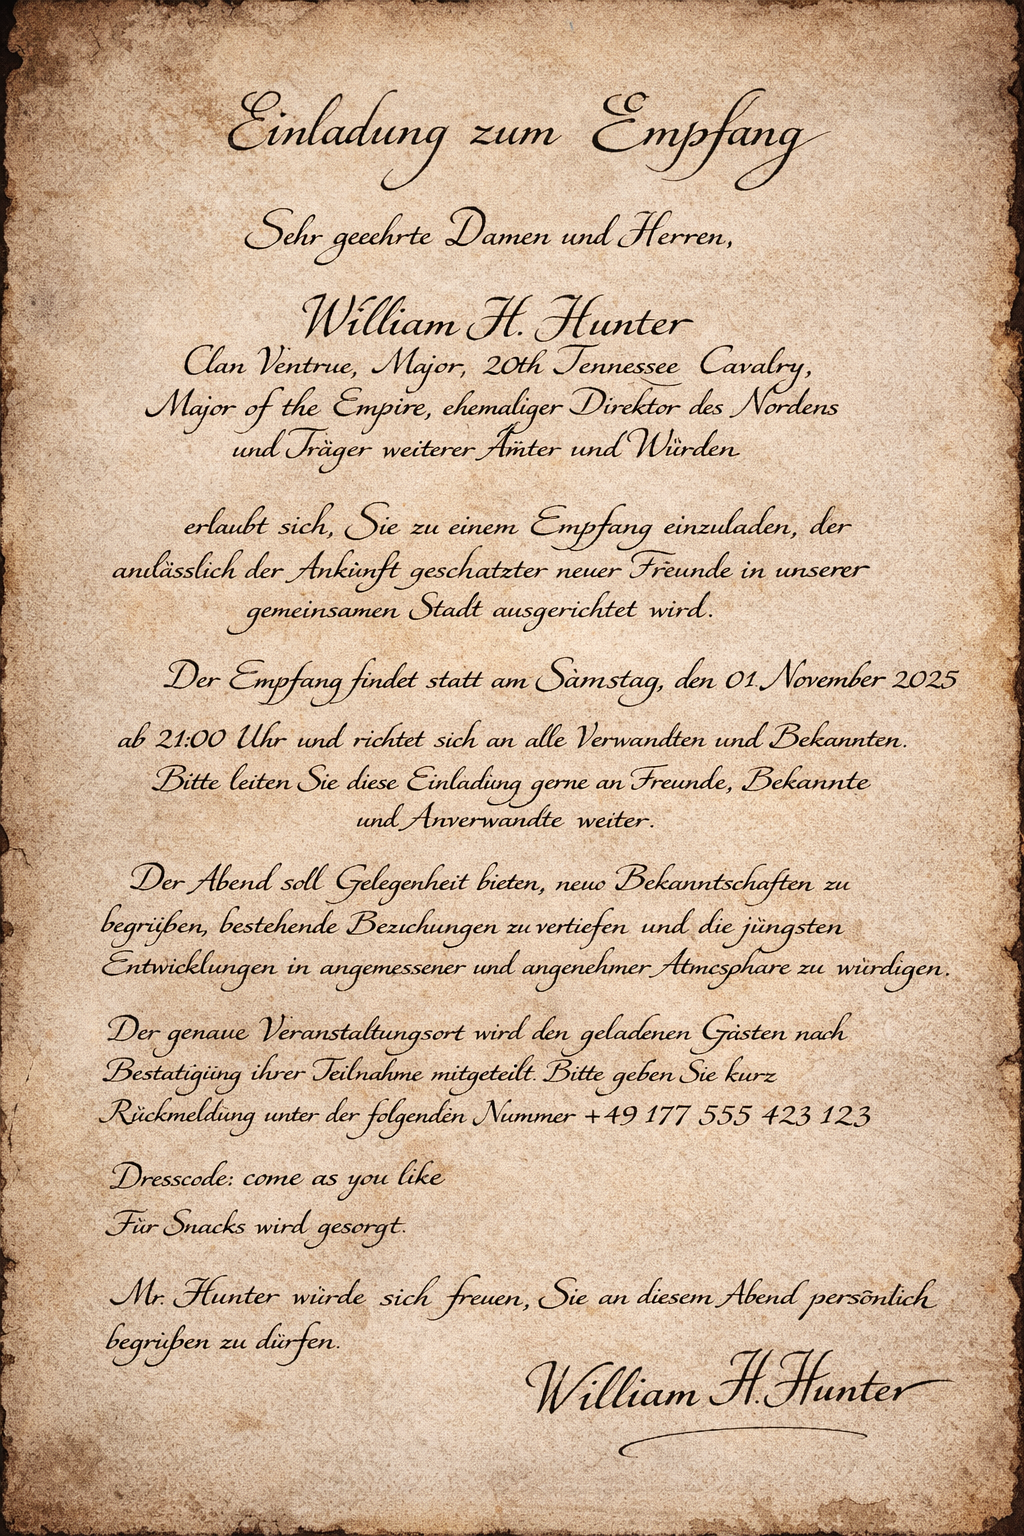 Einladung zum Empfang
Sehr geeehrte Damen und Herren,
William H. Hunter
Clan Ventrue, Major, 20th Tennessee Cavalry,
Major of the Empire, ehemaliger Direktor des Nordens
und Träger weiterer Ämter und Würden
erlaubt sich, Sie zu einem Empfang einzuladen, der
anılässlich der Ankünft geschatzter neuer Freunde in unserer
gemeinsamen Stadt ausgerichtet wird.
Der Empfang findet statt am Sàmstag, den 01. November 2025
ab 21:00 Uhr und richtet sich an alle Verwandten und Bekannten.
Bitte leiten Sie diese Einladüng gerne an Freunde, Bekannte
und Anverwandte weiter.
Der Abend soll Gelegenheit bieten, neuo Bekanntschaften zu
begrüßen, bestehende Bezıchungen zu vertiefen und die jüngsten
Entwicklungen in angemessener und angenehmer Atmcsphare zu würdigen.
Der genaue Veranstaltungsort wird den geladenen Gästen nach
Bestatigüng ihrer Teilnahme mitgeteilt. Bitte geben Sie kurz
Rückmeldüng unter der folgenden Nummer +49 177 555 423 123
Dresscode: come as you like
Für Snacks wird gesorgt.
Mr. Hunter würde sich freuen, Sie an diesem Abend persönlich
begrüßen zu dürfen.
William H. Hunter